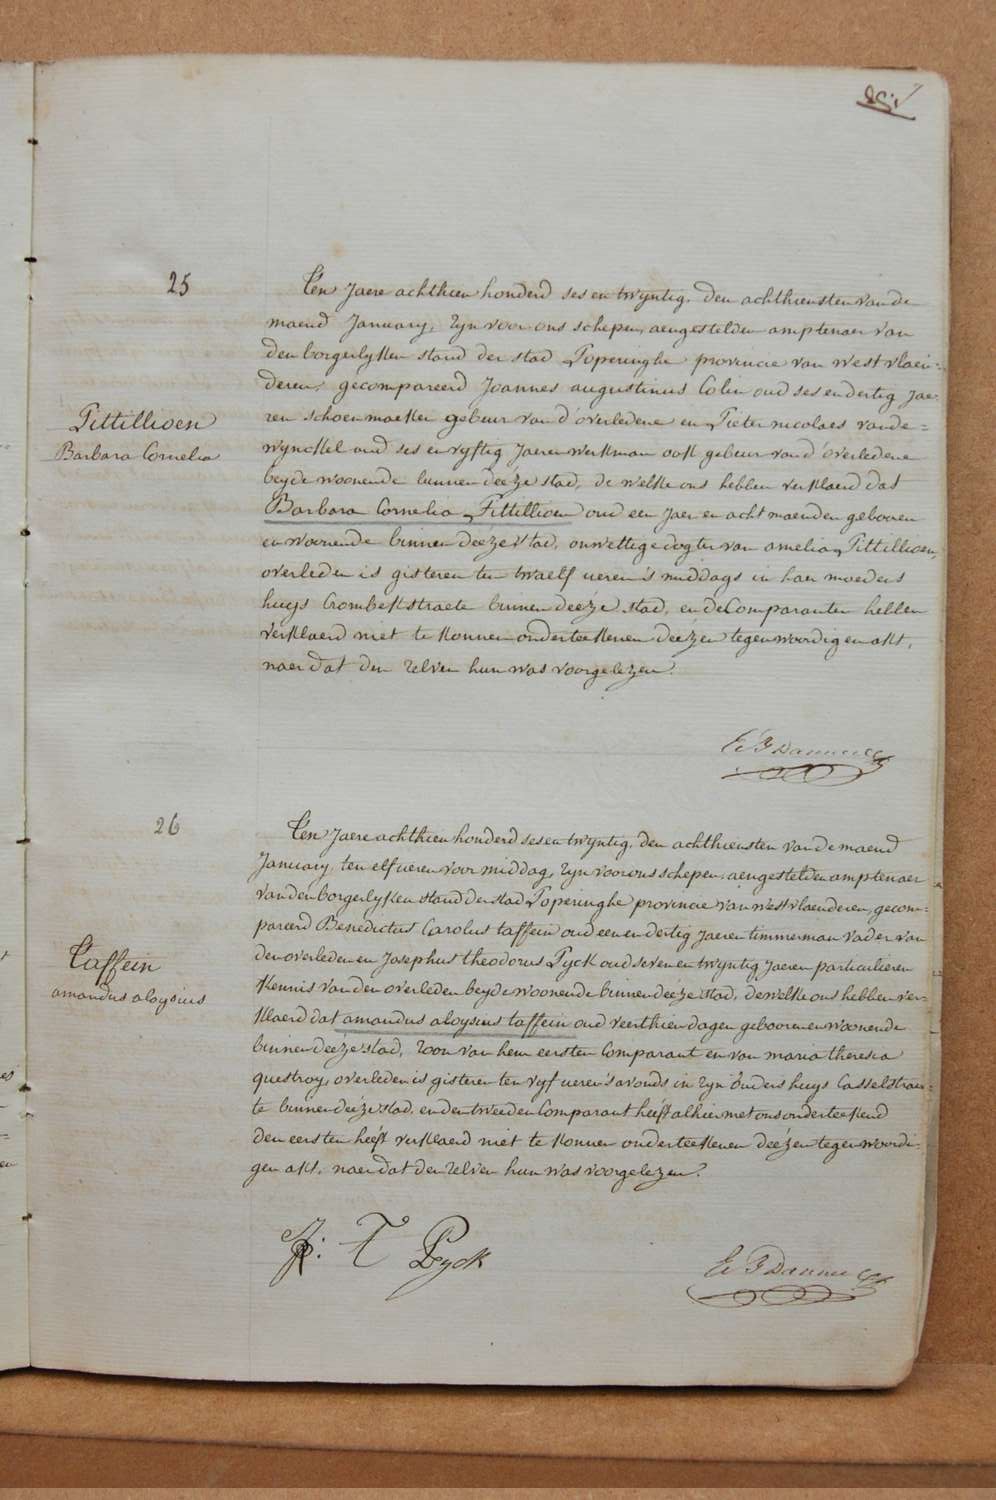 25
Ten Jaere achthien honderd ses en twyntig, den achthiensten van de
maend January, zyn voor ons schepen, aengestelden amptenaer van
den borgerlyken stand der stad Poperinghe provincie van westvlaen=
deren, gecompareerd Joannes augustinus Colin oud ses en dertig jae=
ren schoenmaeker gebeur van d'overledene en Pieter nicolaes vande=
wynckel oud ses en vyftig Jaeren werkman ook gebeur van d'overledene
beyde woonende binnen deéze stad, de welke ons hebben verklaerd dat
Barbara Cornelia Pittillioen oud een Jaer en acht maenden gebooren
en woonende binnen deéze stad, onwettige dogter van amelia Pittillioen,
overleden is gisteren ten twaelf ueren 's middags in haer moeders
huys Crombekstraete binnen deéze stad, en de Comparanten hebben
verklaerd niet te konnen onderteekenen deézen tegenwoordigen akt,
naer dat den zelven hun was voorgelezen.
Pittillioen
Barbara Cornelia
26
Ten Jaere achthien honderd ses en twyntig, den achthiensten van de maend
January, ten elf ueren voor middag, zyn voor ons schepen, aengestelden amptenaer
van den borgerlyken stand der stad Poperinghe provincie van westvlaenderen, gecom=
pareerd Benedictus Carolus taffein oud een en dertig Jaeren timmerman vader van
den overleden en Josephus theodorus Pyck oud seven en twyntig Jaeren particulieren
kennis van den overleden beyde woonende binnen deéze stad, de welke ons hebben ver=
klaerd dat amandus aloysius taffein oud veerthien dagen gebooren en woonende
binnen deéze stad, zoon van hem eersten Comparant en van maria theresia
questroy, overleden is gisteren ten vyf ueren 's avonds in zyn ouders huys Casselstrae=
te binnen deéze stad, en den tweeden Comparant heéft alhier met ons onderteekend
den eersten heéft verklaerd niet te konnen onderteekenen deézen tegenwoordi=
gen akt, naer dat den zelven hun was voorgelezen.
Taffein
amandus aloysius
J: T Pyck